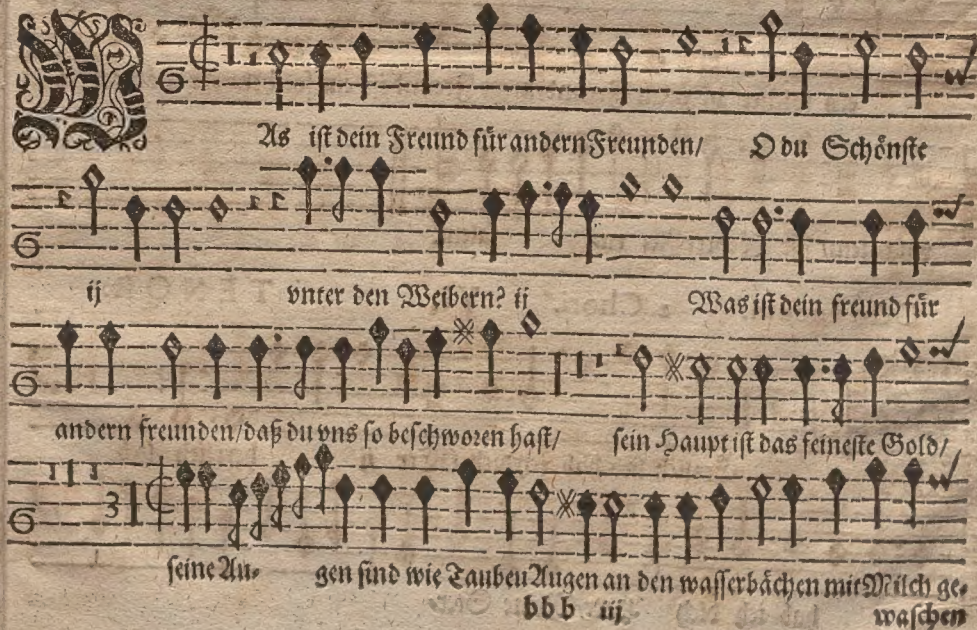 WAs ist dein Freund für andern Freunden/ O du Schönste
ij vnter den Weibern? ij Was ist dein freund für
andern freunden/daß du vns so beschworen hast/ sein Haupt ist das feineste Gold/
3
seine Au- gen sind wie Tauben Augen an den wasserbächen mit Milch ge-
bbb iij waschen